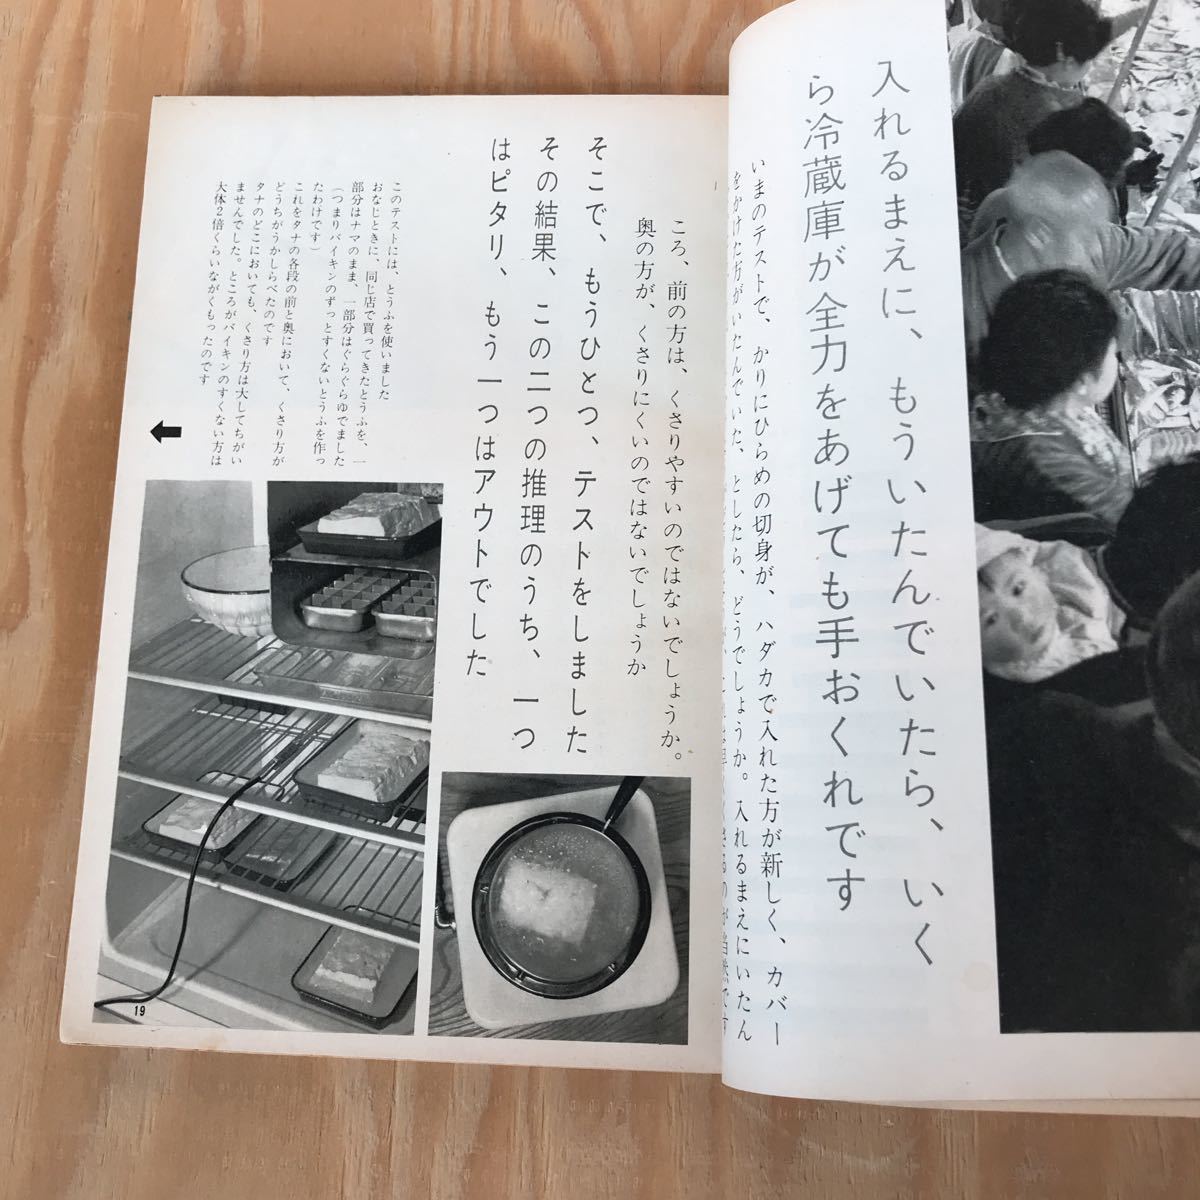 入れるまえに、もういたんでいたら、いく
ら冷蔵庫が全力をあげても手おくれです
いまのテストで、かりにひらめの切身が、ハダカで入れた方が新しく、カバー
をかけた方がいたんでいた、としたら、どうでしょうか。入れるまえにいたん
ころ、前の方は、くさりやすいのではないでしょうか。
奥の方が、くさりにくいのではないでしょうか
そこで、もうひとつ、テストをしました
その結果、この二つの推理のうち、一つ
はピタリ、もう一つはアウトでした
このテストには、とうふを使いました
おなじときに、同じ店で買ってきたとうふを、一
部分はナマのまま、一部分はぐらぐらゆでました
（つまりバイキンのずっとすくないとうふを作っ
たわけです）
これをタナの各段の前と奥において、くさり方が
どうちがうかしらべたのです
タナのどこにおいても、くさり方は大してちがい
ませんでした。ところがバイキンのすくない方は
大体2倍くらいながくもったのです
19